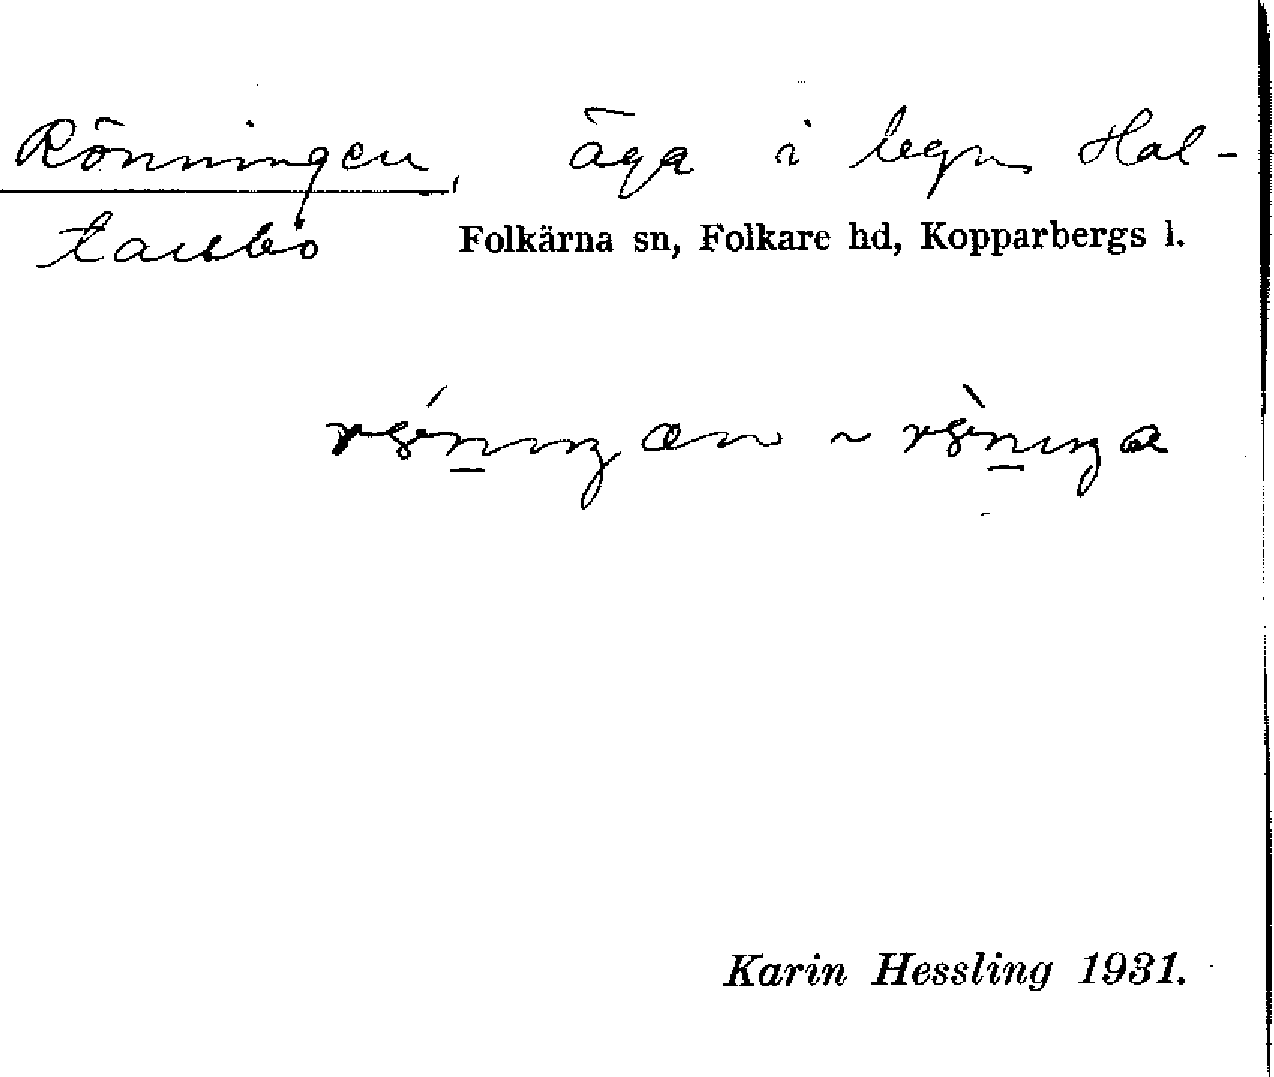 Rönningen, äga i begr Hal-
tarsbo Folkärna sn, Folkare hd, Kopparbergs l.
Karin Hessling 1931.